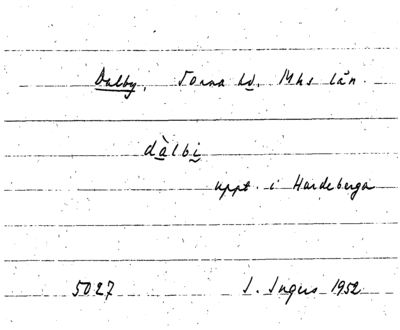 Dalby, Torna hd, Mhs län.
dàlbi
uppt. i Hardeberga
5027 I. Ingers 1952